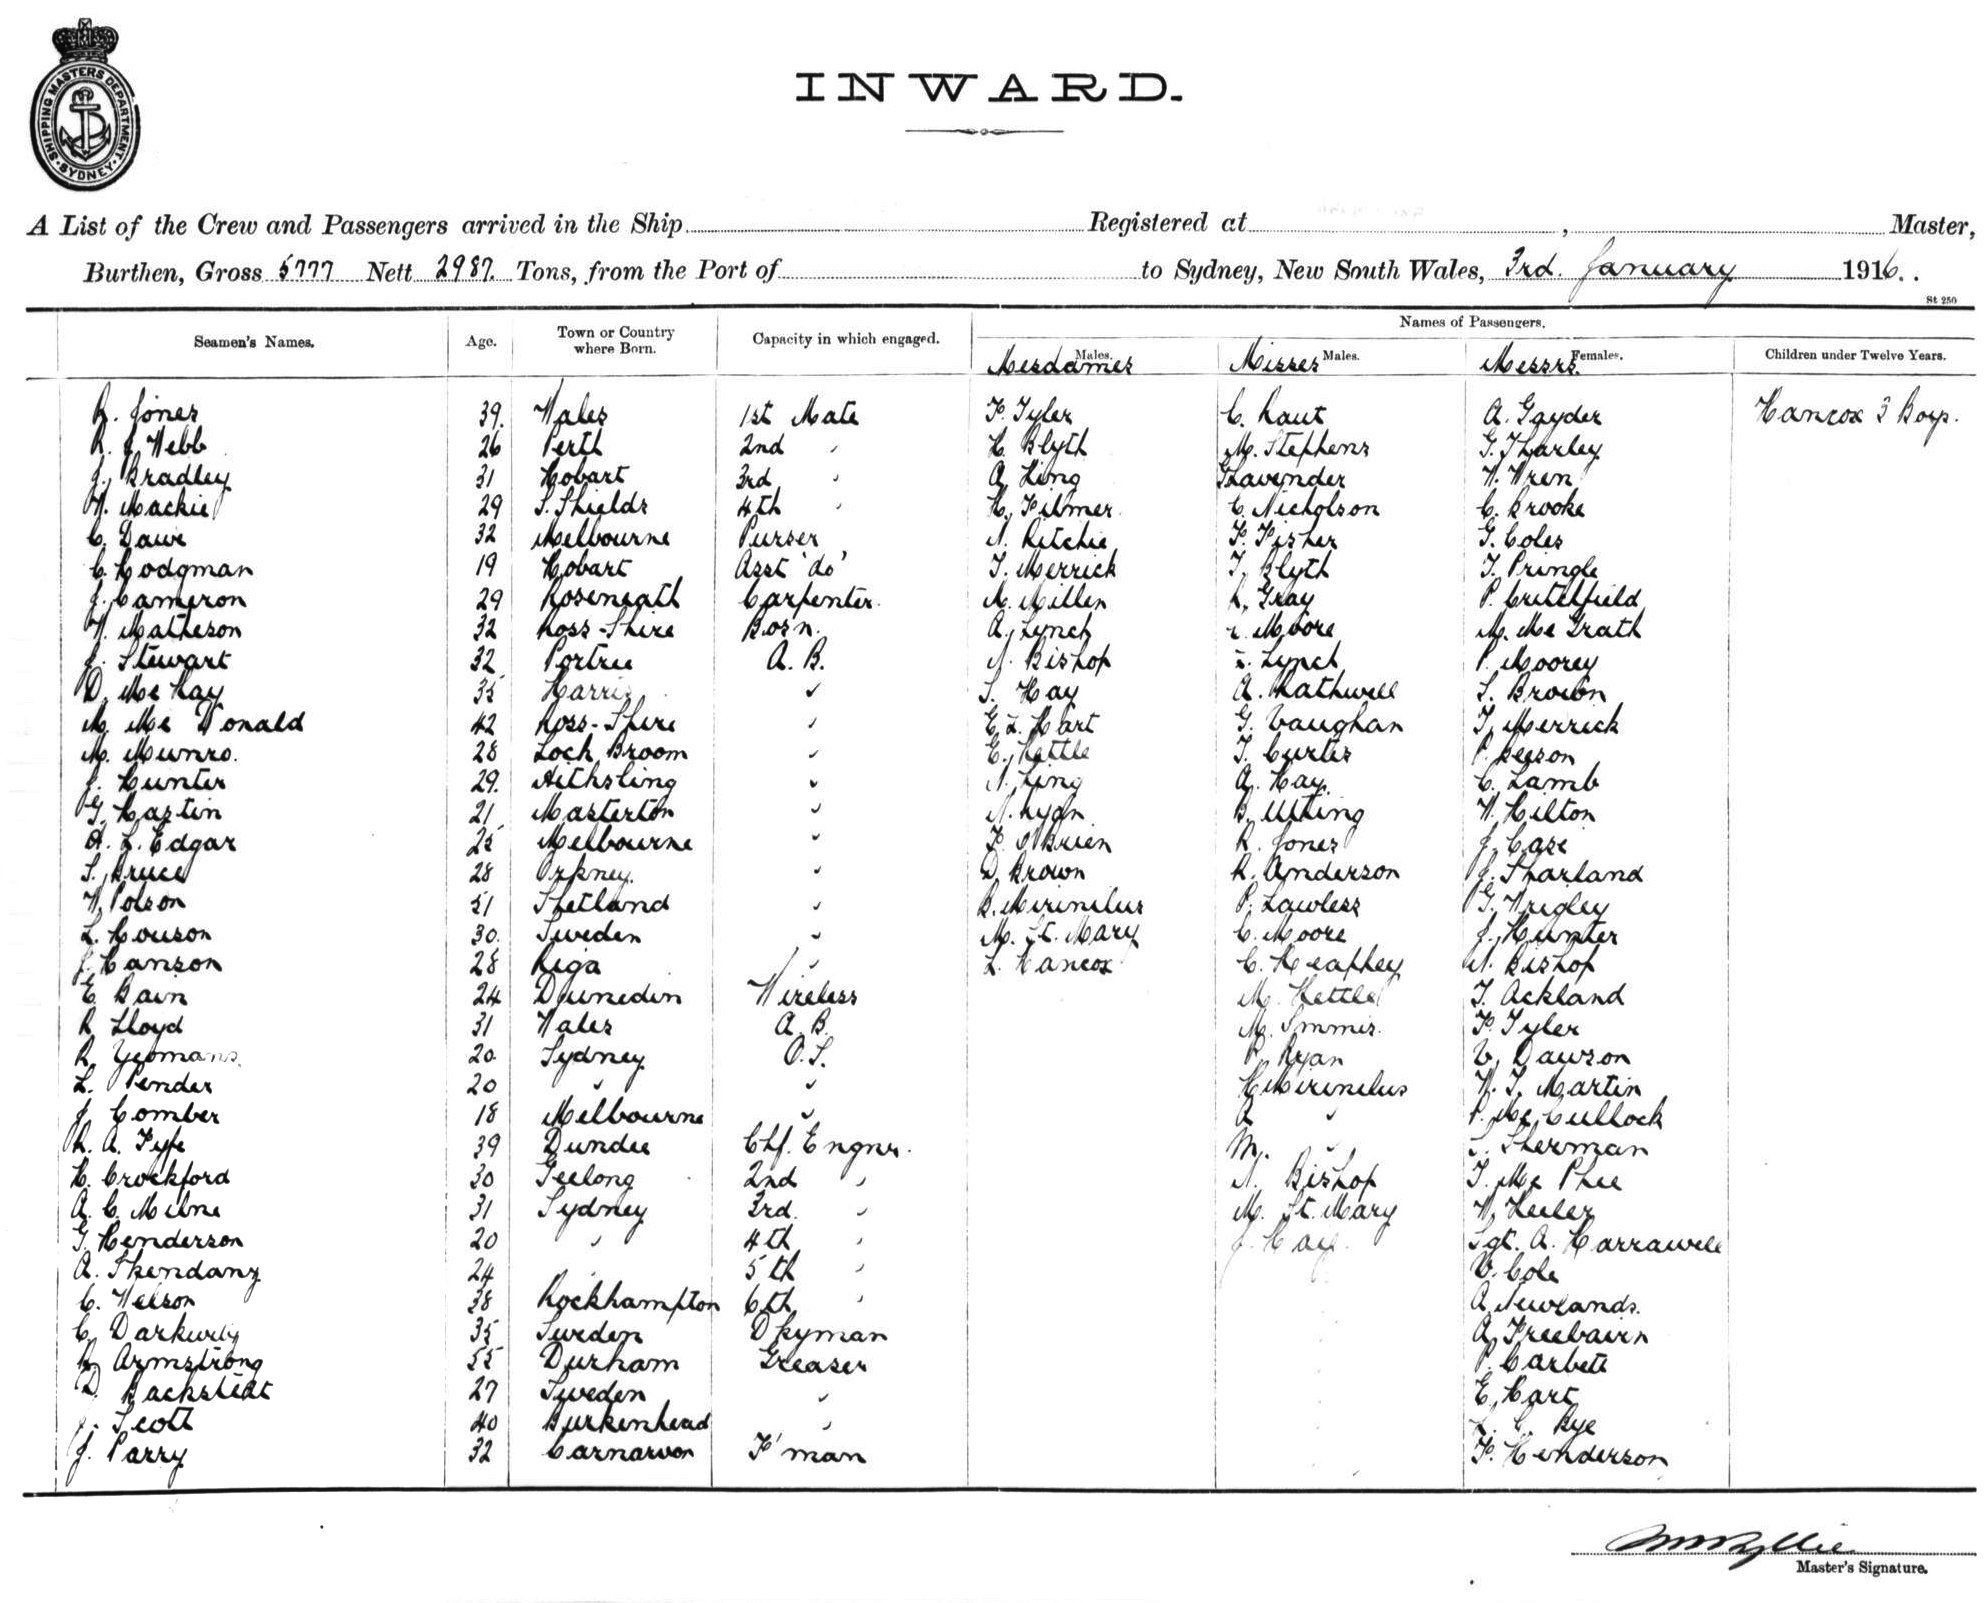 SHIPPING MASTERS DEPARTMENT · SYDNEY ·
INWARD.
A List of the Crew and Passengers arrived in the Ship Registered at , Master,
Burthen, Gross 5777 Nett 2987. Tons, from the Port of to Sydney, New South Wales, 3rd. January 1916.
St 250
Seamen's Names. Age. Town or Country where Born. Capacity in which engaged. Names of Passengers.
Mesdames Males. Misses Males. Messrs. Females. Children under Twelve Years.
R. Jones 39. Wales 1st Mate F. Tyler C. Raut A. Gayder Hancox 3 Boys.
R. J. Webb 26 Perth 2nd " H. Blyth M. Stephens G. Tharley
J. Bradley 31 Hobart 3rd " A. King Lavender W. Wren
W. Mackie 29 S. Shields 4th " H. Filmer. C. Nicholson C. Brooke
C. Dawe 32 Melbourne Purser N. Ritchie F. Fisher G. Coles
C. Hodgman 19 Hobart Asst 'do' T. Merrick T. Blyth T. Pringle
J. Cameron 29 Roseneath Carpenter. M. Millen L. Gray P. Critchfield
W. Matheson 32 Ross-Shire Bosn. A. Lynch Moore M. Mc Grath
J. Stewart 32 Portree A. B. N. Bishop Lynch P. Moorey
D. Mc Kay 35 Harris " S. Hay A. Rathwell L. Brown
M. Mc Donald 42 Ross-Shire " E. L. Hart G. Vaughan T. Merrick
M. Munro. 28 Loch Broom " E. Kettle T. Curtis P. Leeson
J. Hunter 29. " N. Ling A. Hay. C. Lamb
G. Hastin 21 Masterton " N. Ryan B. Utting W. Hilton
A. L. Edgar 25 Melbourne " F. O'Brien R. Jones J. Case
S. Bruce 28 Orkney. " D. Brown R. Anderson J. Sharland
W. Polson 51 Shetland " B. Mirinelus P. Lawless G. Wrigley
L. Houson 30. Sweden " M. St. Mary C. Moore J. Hunter
J. Hanson 28 Riga " L. Hancox C. Heaphey N. Bishop
E. Bain 24 Dunedin Wireless M. Kettle T. Ackland
R. Lloyd 31 Wales A. B. M. F. Tyler
R. Yeomans. 20. Sydney O. S. P. Ryan V. Dawson
L. Pender 20 " " H. Mirinelus W. T. Martin
J. Comber 18 Melbourne " A " P. Mc Cullock
R. A. Fyfe 39 Dundee Chf. Engnr. M. " Sherman
H. Crockford 30 Geelong 2nd " N. Bishop T. Mc Phee
A. C. Milne 31 Sydney 3rd. " M. St. Mary W. Keeler
G. Henderson 20 " 4th " J. Hay. Sgt. A. Harrawell
A. 24 5th " V. Cole
C. Nelson 38 Rockhampton 6th " A. Newlands.
C. 35 Sweden Dkyman A. Freebairn
R. Armstrong 55 Durham Greaser P. Carbett
D. Backstedt 27 Sweden " E. Hart
J. Scott 40 Birkenhead " L. C. Bye
J. Parry 32 Carnarvon F'man F. Henderson
Master's Signature.